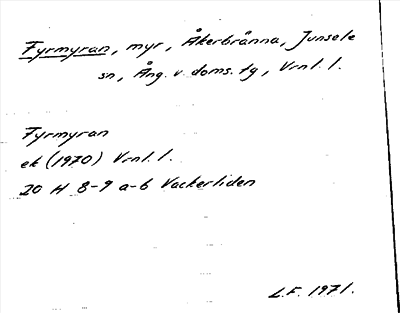 Fyrmyran, myr, Åkerbränna, Junsele
sn, Ång. v. doms. tg, Vrnl. l.
Fyrmyran
ek (1970) Vrnl. l.
20 H 8-9 a-b Vackerliden
L.F. 1971.